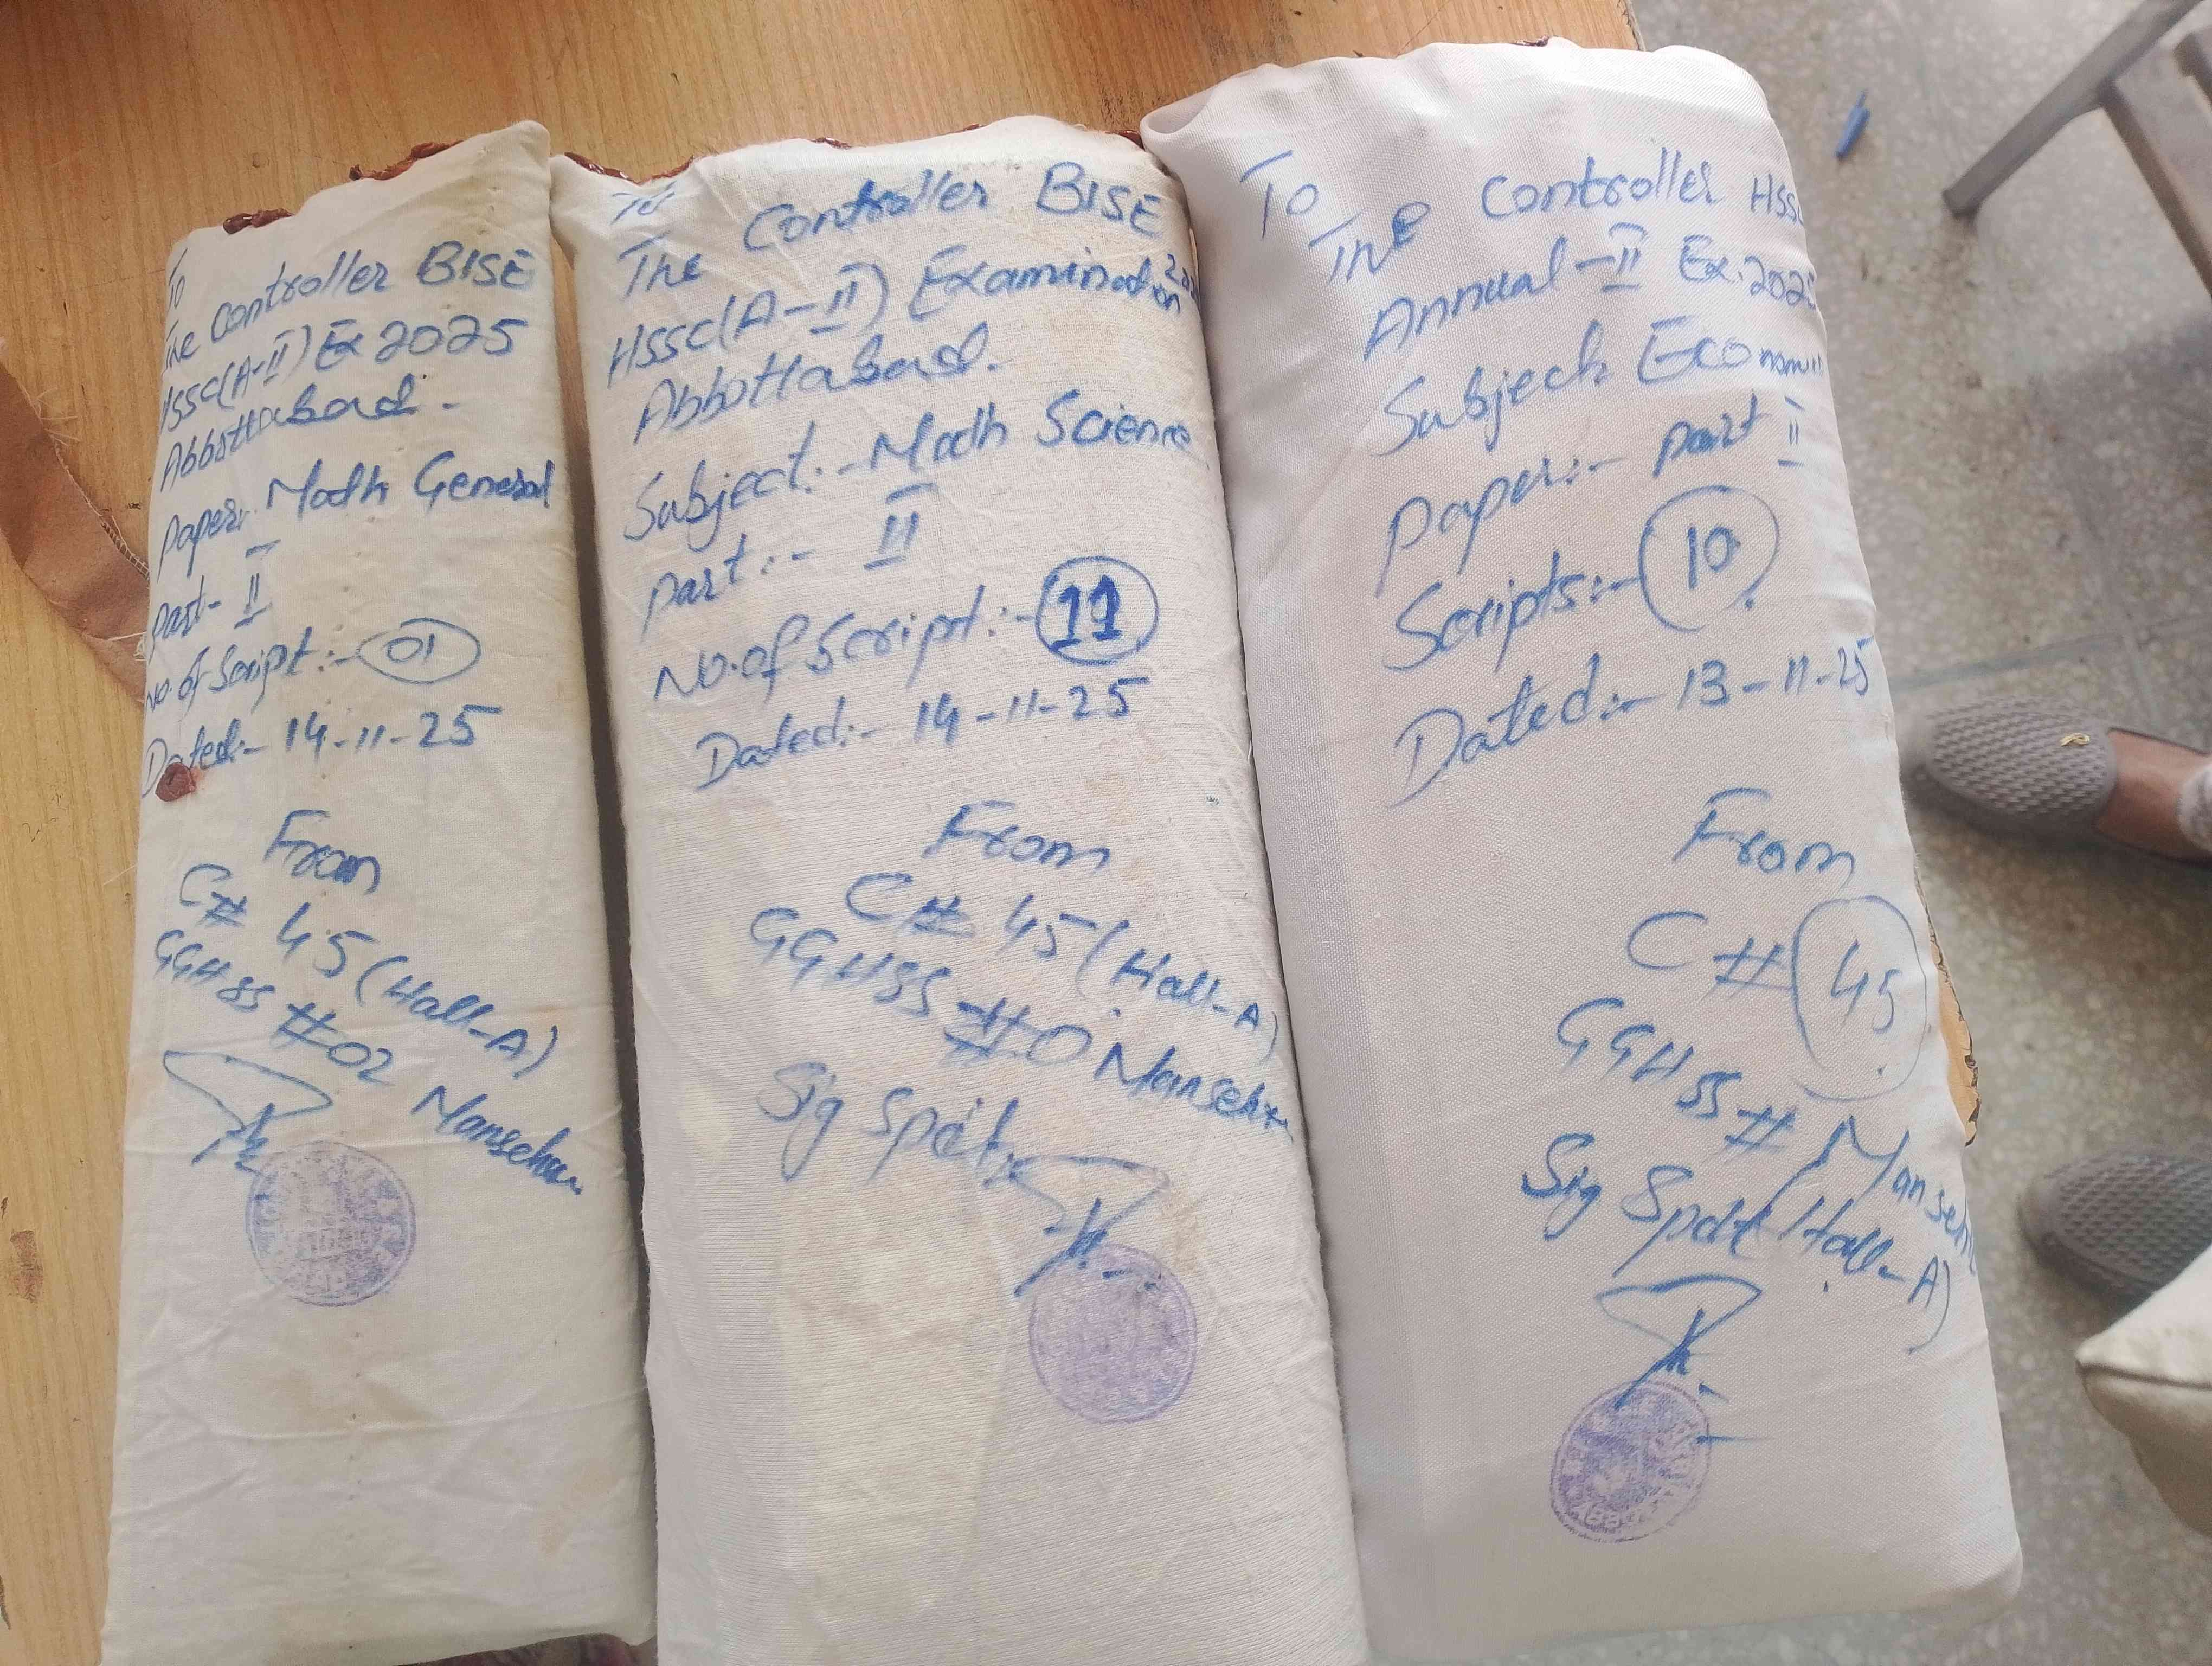 To
The Controller BISE
Hssc(A-II) Ex 2025
Abbottabad.
Paper:- Math General
Part- II
No. of Script:- 01
Dated:- 14-11-25
From
C# 45 (Hall-A)
GGHSS #02 Mansehra
To
The Controller BISE
Hssc(A-II) Examination
Abbottabad.
Subject:- Math Science
Part:- II
No. of Script:- 11
Dated:- 14-11-25
From
C# 45 (Hall-A)
GGHSS #0 Mansehra
Sig Spdt:-
To
The Controller HSSC
Annual-II Ex. 2025
Subject: Economi
Paper:- Part II
Scripts:- 10
Dated:- 13-11-25
From
C# 45
GGHSS # Manseh
Sig Spdt (Hall-A)